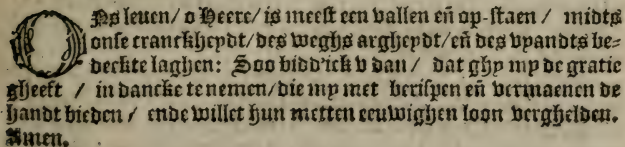 ONs leuen / o Heere / is meest een vallen eñ op-staen / midts
onse cranckheydt / des weghs argheydt / eñ des vyandts be-
deckte laghen: Soo bidd'ick v dan / dat ghy my de gratie
gheeft / in dancke te nemen / die my met berispen eñ vermaenen de
handt bieden / ende willet hun metten eeuwighen loon verghelden.
Amen.